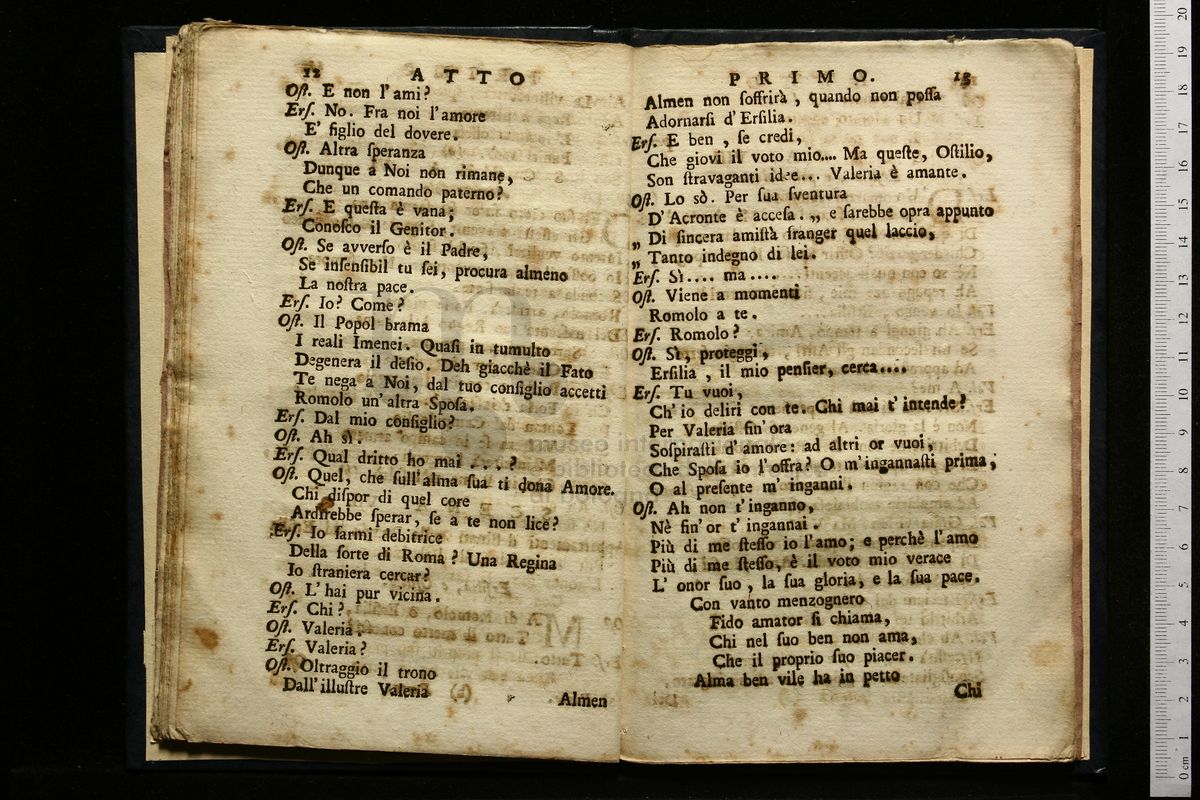 12 ATTO
Oſt. E non l'ami?
Erſ. No. Fra noi l'amore
E' figlio del dovere.
Oſt. Altra ſperanza
Dunque a Noi non rimane,
Che un comando paterno?
Erſ. E queſta è vana;
Conoſco il Genitor.
Oſt. Se avverſo è il Padre,
Se inſenſibil tu ſei, procura almeno
La noſtra pace.
Erſ. Io? Come?
Oſt. Il Popol brama
I reali Imenei. Quaſi in tumulto
Degenera il deſio. Deh giacchè il Fato
Te nega a Noi, dal tuo conſiglio accetti
Romolo un'altra Spoſa.
Erſ. Dal mio conſiglio?
Oſt. Ah sì.
Erſ. Qual dritto ho mai ...?
Oſt. Quel, che ſull'alma ſua ti dona Amore.
Chi diſpor di quel core
Ardirebbe ſperar, ſe a te non lice?
Erſ. Io farmi debitrice
Della ſorte di Roma? Una Regina
Io ſtraniera cercar?
Oſt. L'hai pur vicina.
Erſ. Chi?
Oſt. Valeria.
Erſ. Valeria?
Oſt. Oltraggio il trono
Dall'illuſtre Valeria
Almen
PRIMO. 13
Almen non ſoffrirà, quando non poſſa
Adornarſi d'Erſilia.
Erſ. E ben, ſe credi,
Che giovi il voto mio.... Ma queſte, Oſtilio,
Son ſtravaganti idee... Valeria è amante.
Oſt. Lo sò. Per ſua ſventura
D'Acronte è acceſa. „ e ſarebbe opra appunto
„ Di ſincera amiſtà franger quel laccio,
„ Tanto indegno di lei.
Erſ. Sì.... ma....
Oſt. Viene a momenti
Romolo a te.
Erſ. Romolo?
Oſt. Sì, proteggi,
Erſilia, il mio penſier, cerca....
Erſ. Tu vuoi,
Ch'io deliri con te. Chi mai t'intende?
Per Valeria fin'ora
Soſpiraſti d'amore: ad altri or vuoi,
Che Spoſa io l'offra? O m'ingannaſti prima,
O al preſente m'inganni.
Oſt. Ah non t'inganno,
Nè fin'or t'ingannai.
Più di me ſteſſo io l'amo; e perchè l'amo
Più di me ſteſſo, è il voto mio verace
L'onor ſuo, la ſua gloria, e la ſua pace.
Con vanto menzognero
Fido amator ſi chiama,
Chi nel ſuo ben non ama,
Che il proprio ſuo piacer.
Alma ben vile ha in petto
Chi